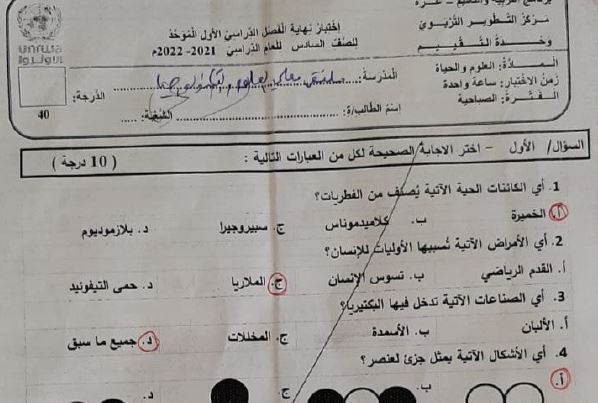 unrwa
الأونروا
مركز التطوير التربوي
وحدة التقييم
اختبار نهاية الفصل الدراسي الأول الموحد
للصف السادس للعام الدراسي 2021-2022م
المادة: العلوم والحياة
زمن الاختبار: ساعة واحدة
الفترة: الصباحية
المدرسة:
اسم الطالب/ة:
الشعبة:
الدرجة:
40
السؤال/ الأول - اختر الاجابة الصحيحة لكل من العبارات التالية : ( 10 درجة )
1. أي الكائنات الحية الآتية يُصنف من الفطريات؟
أ. الخميرة ب. كلاميدوموناس ج. سبيروجيرا د. بلازموديوم
2. أي الأمراض الآتية تُسببها الأوليات للإنسان؟
أ. القدم الرياضي ب. تسوس الإنسان ج. الملاريا د. حمى التيفوئيد
3. أي الصناعات الآتية تدخل فيها البكتيريا؟
أ. الألبان ب. الأسمدة ج. المخللات د. جميع ما سبق
4. أي الأشكال الآتية يمثل جزئ لعنصر؟
أ. ب. ج. د.